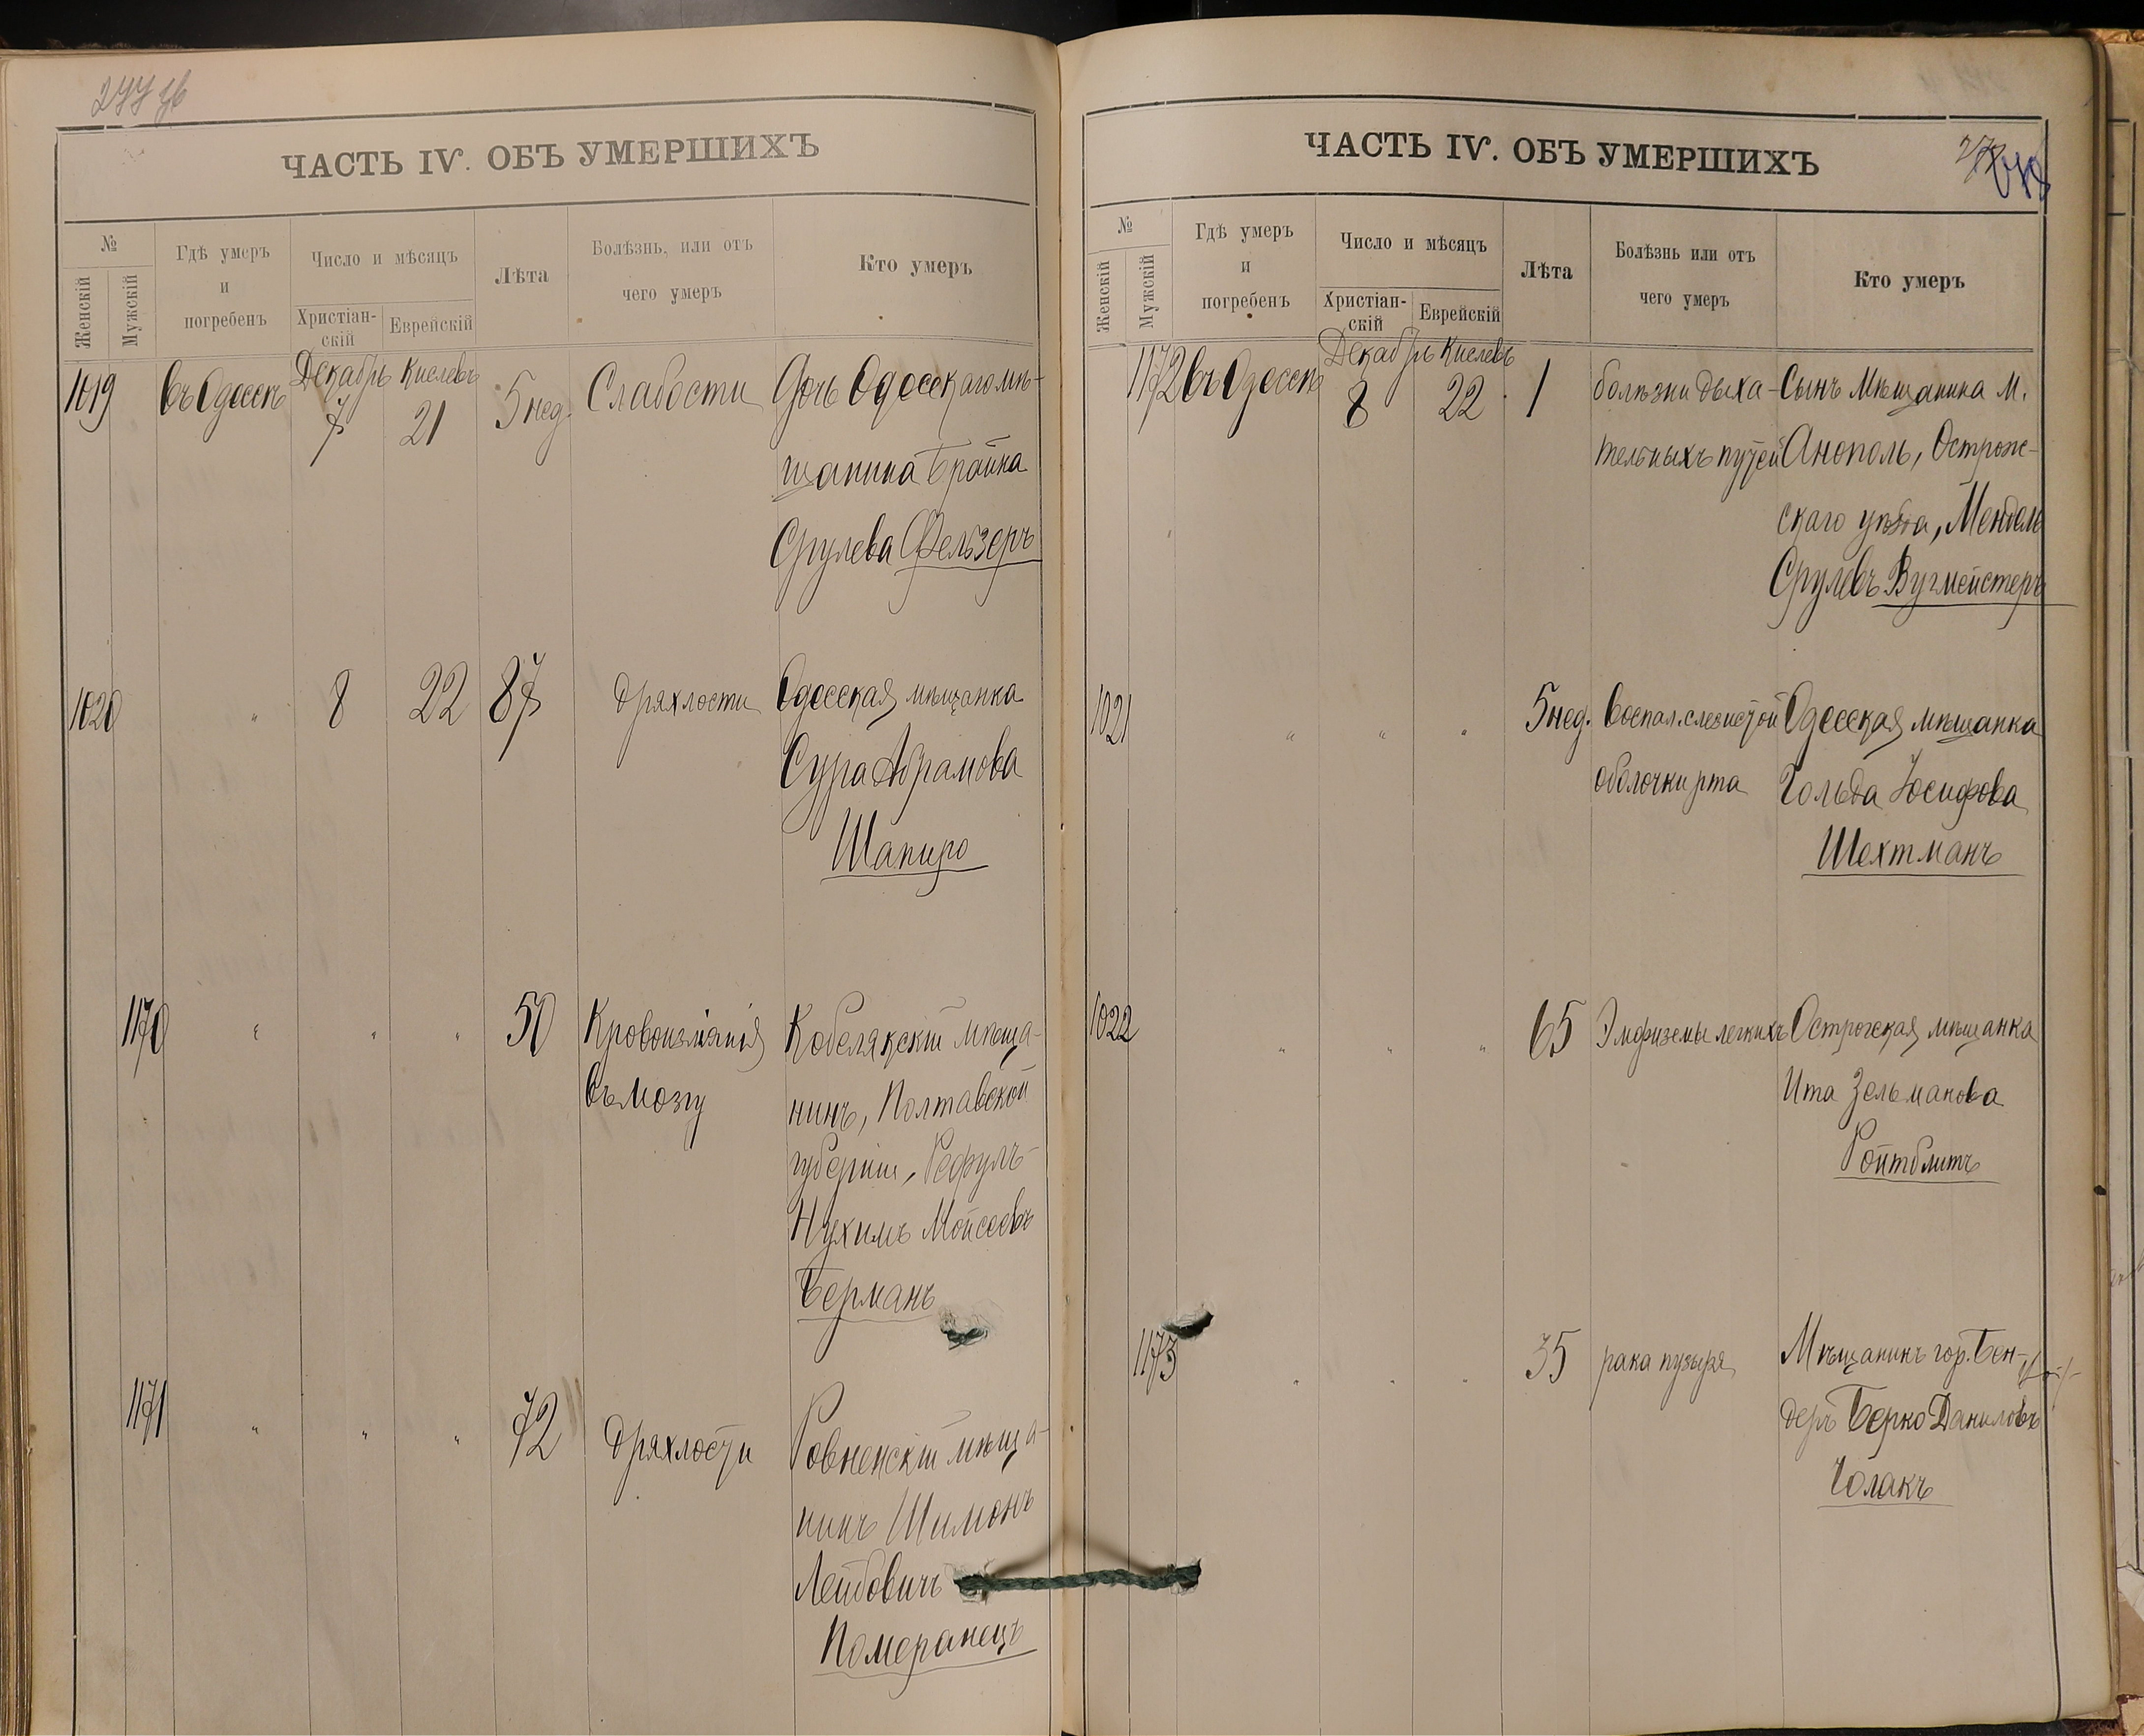 277 об
ЧАСТЬ IV. ОБЪ УМЕРШИХЪ
№
Женскій
Мужскій
Гдѣ умеръ
и
погребенъ
Число и мѣсяцъ
Христіан-
скій
Еврейскій
Лѣта
Болѣзнь, или отъ
чего умеръ
Кто умеръ
1019 въ Одессѣ Декабрь 7 Кислевъ 21 5 нед. Слабости Дочь Одесскаго мѣ-
щанина Брайна
Срулева Фельзеръ
1020 " 8 22 87 дряхлости Одесская мѣщанка
Сура Абрамова
Шапиро
1170 " " " 50 Кровоизліянія Кобелякскій мѣща-
въ мозгу нинъ, Полтавской
губерніи, Рефулъ-
Нухимъ Мойсеевъ
Берманъ
1171 " " " 72 дряхлости Ровненскій мѣща-
нинъ Шимонъ
Лейбовичъ
Померанецъ
ЧАСТЬ IV. ОБЪ УМЕРШИХЪ
№
Женскій
Мужскій
Гдѣ умеръ
и
погребенъ
Число и мѣсяцъ
Христіан-
скій
Еврейскій
Лѣта
Болѣзнь или отъ
чего умеръ
Кто умеръ
1172 въ Одессѣ Декабрь 8 Кислевъ 22 1 болѣзни дыха- Сынъ мѣщанина м.
тельныхъ путей Анополь, Острож-
скаго уѣзда, Мендель
Срулевъ Вугмейстеръ
1021 " " " 5 нед. Воспал. слизистой Одесская мѣщанка
оболочки рта Гольда Іосифова
Шехтманъ
1022 " " " 65 Эмфиземы легкихъ Острогская мѣщанка
Ита Зельманова
Ройтблитъ
1173 " " " 35 рака пузыря Мѣщанинъ гор. Бен-
деръ Берко Даниловъ
Чолакъ